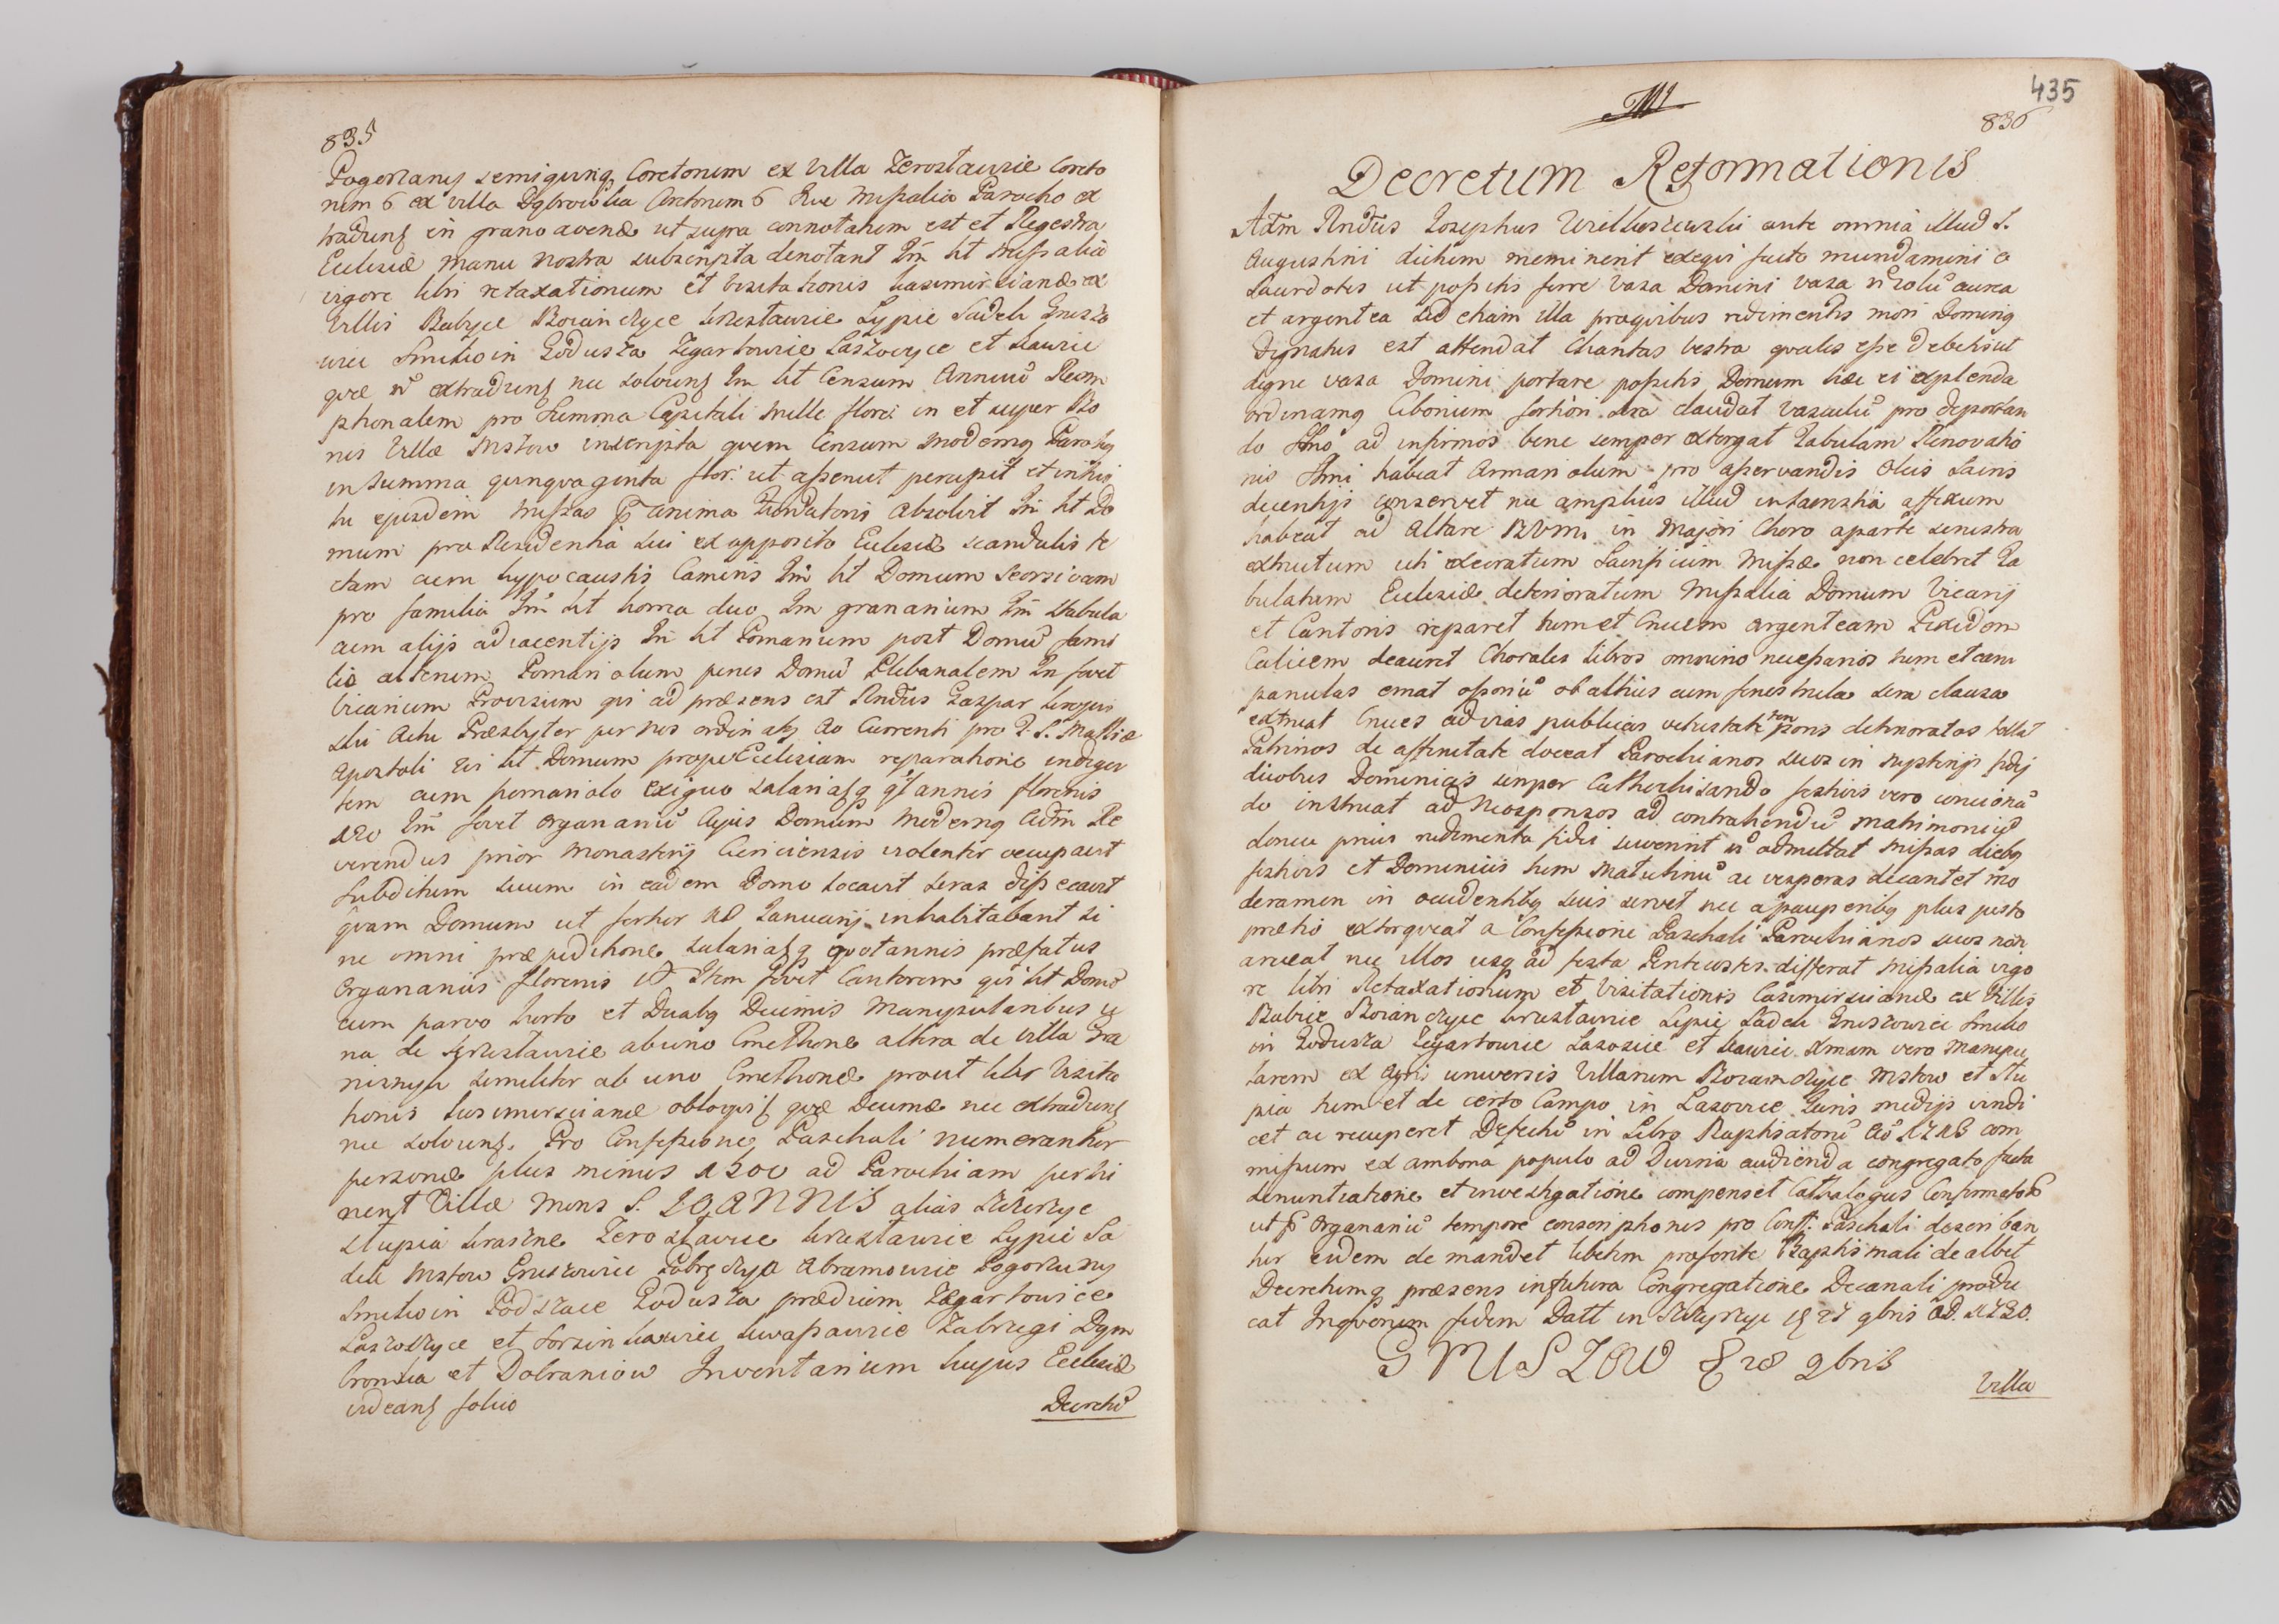 835
Pogorzany semiquinq Coretorum ex Villa Zerostawie Coreto
rum 6 ex villa Dąbrowka Coretorum 6 Missalia Parocho ex
tradunt in grano avenæ ut supra connotatum est et Regestra
Ecclesiæ manu nostra subscripta denotant Im ht Missalia
vigore libri retaxationum et visitationis Casimirscianæ ex
Villis Rabyce Borianczyce Krzestawie Lypie Sadek Gruszo
wiec Smitwin Zodusza Zegartowie Laszowyce et Kawic
quæ n extradunt nec solvunt Im ht Censum Annuū Reem
ptionalem pro Summa Capitali mille floren in et super Bo
nis Villæ Mstow inscripta quem Censum modernq Parochq
in Summa quinquaginta flor: ut asseruit percepit et intui
tu ejusdem Missas p anima Fundatoris absolvit Im ht Do
mum pro Residentia sui ex opposito Ecclesiæ scandulis te
ctam cum hypocaustis Caminis Im ht Domum seorsivam
pro familia Im ht horrea duo Im granarium Im stabula
cum alijs adiacentijs Im ht Pomarium post Domū fami
liæ alterum Pomariolum penes Domū Plebanalem Im fovet
Vicarium Provisum qui ad præsens est Rndus Gaspar
ski Actu Præsbyter per nos ordinatq Ao Currenti pro D. S. Mathiæ
Apostoli Is ht Domum prope Ecclesiam reparatione indigen
tem cum pomariolo exiguo salariatq qt annis florenis
120 Im fovet organariū Cujus Domum modernq Adm Re
verendus prior Monasterij Ciriciensis violenter occupavit
subditum suum in eadem Domo locavit seras dissecavit
quam Domum ut fertur ad Januarij inhalitabant si
ne omni præpeditione salariatq quotannis præfatus
Organarius florenis 10 Item fovet Cantorem qui ht Domū
cum parvo horto et Duabq Decimis Manipularibus u
na de Krzestawie ab uno Cmethone altera de villa Gra
similiter ab uno Cmethone prout liber Visita
tionis Casimirscianæ obloquit quæ Decimæ nec extradunt
nec solvunt. Pro Confessione Paschali numerantur
personæ plus minus 1200 ad Parochiam perti
nent Villæ Mons S. IOANNIS alias Skrzyce
Stupia Kraszne Zerostawie Krzestawie Lypie Sa
dek Mstow Gruszowiec Dobrczyce Abramowie Pogorzany
Smitwin Podszcie Zodusza prædium Zegartowice
Laszoczyce et forsin Kawiec Kwapawie Zabrzegi Dym
browka et Dobraniow Inventarium hujus Ecclesiæ
videant folio
Decretū
435
836
Decretum Reformationis
Adm Rndus Josephus Wielkoszewski ante omnia illud S.
Augustini dictum meminerit exequi facto mundamini o
Sacerdotes ut possitis ferre vasa Domini vasa n solū aurea
et argentea sed etiam illa pro quibus redimentis mori Dominq
dignatus est attendat Charitas vestra quales esse debetis ut
digne vasa Domini portare possitis Domum hæc ei explenda
ordinamq Cibonium fortiori sera claudat vasculū pro deportan
do Smo ad infirmos bene semper extergat Tabulam Renovatio
nis Smi habeat Armariolum pro asservandis Oleis Sacris
decentijs conservet nec amplius illud in sacristia affixum
habeat ad Altare BVM. in Majori Choro a parte sinistra
extructum uti execratum Sacrificium Missæ non celebret Ta
bulatum Ecclesiæ deterioratum Missalia Domum Vicarij
et Cantoris reparet tum et Crucem argenteam Pixidem
Calicem deauret Chorales libros omnino necessarios tum et cam
panulas emat ossoriū ob altius cum fenestrula sera clausa
extruat Cruces ad vias publicas vetustate temporis deterioratas tollat
Patrinos de affinitate doceat Parochianos suos in nuptijs
diebus Dominicis semper Cathechisando festivis vero concionā
do instruat ad Neosponsos ad contrahendū matrimoniū
donec prius rudimenta fidei sciverint n admittat Missas diebq
festivis et Dominicis tum Matutinū ac vesperas decantet mo
deramen in accidentibq suis servet nec a pauperibq plus justo
pretio extorqueat a Confessione Paschali Parochianos suos non
arceat nec illos usq ad festa Pentecostes differat Missalia vigo
re libri Retaxationum et Visitationis Casimirscianæ ex Villis
Rabrie Borianczyce Krzestawie Lypie Sadek Gruszowiec Smitw
in Zodusza Zegartowie Laszocie et Kawiec Dmam vero Manipu
larem ex Agris universis Villarum Borianczyce Mstow et Stu
pia tum et de certo Campo in Lasowice Iuris medijs vindi
cet ac recuperet Defectū in Libro Baptisatorū Ao 1718 com
missum ex ambona populo ad Divina audienda congregato facta
denuntiatione et investigatione compenset Cathalogus Confirmatorū
ut p Organariū tempore conscriptionis pro Conf: Paschali describan
tur eidem de mandet libetim præfonte Baptismali de albet
Decretumq præsens in futura Congregatione Decanali produ
cat In quorum fidem Datt in Skrzyce 27 9bris AD. 1730.
GRUSZOW 28 9bris
Villa